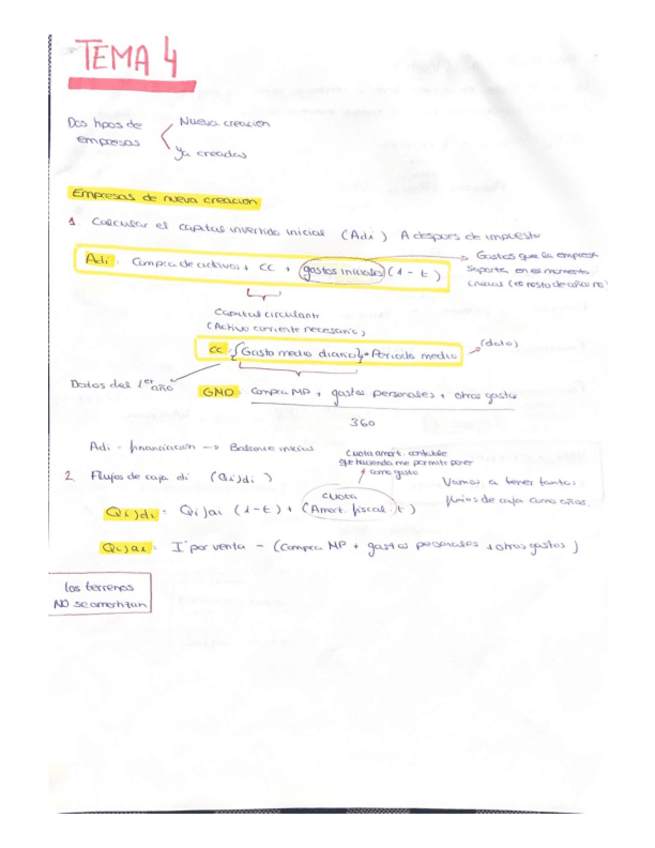 TEMA 4
Dos tipos de empresas
Nueva creación
Ya creadas
Empresas de nueva creación
1. Calcular el capital invertido inicial (Adi) A despues de impuesto
Adi: Compra de activos + CC + gastos iniciales (1 - t)
Gastos que la empresa
soporta en ese momento
inicial (el resto de años no)
Capital circulante
(Activo corriente necesario)
CC: {Gasto medio diario} * Periodo medio
(dato)
Datos del 1er año
GMD: Compra MP + gastos personales + otros gastos
360
Adi - financiación → Balance inicial
Cuota amort. contable
que hacienda me permite poner
como gasto
2. Flujos de caja di (Qi)di)
Vamos a tener tantos
flujos de caja como años.
Qi)di: Qi)ai (1-t) + (cuota Amort. fiscal · t)
Qi)ai: I° por venta - (Compra MP + gastos personales + otros gastos)
los terrenos
NO se amortizan